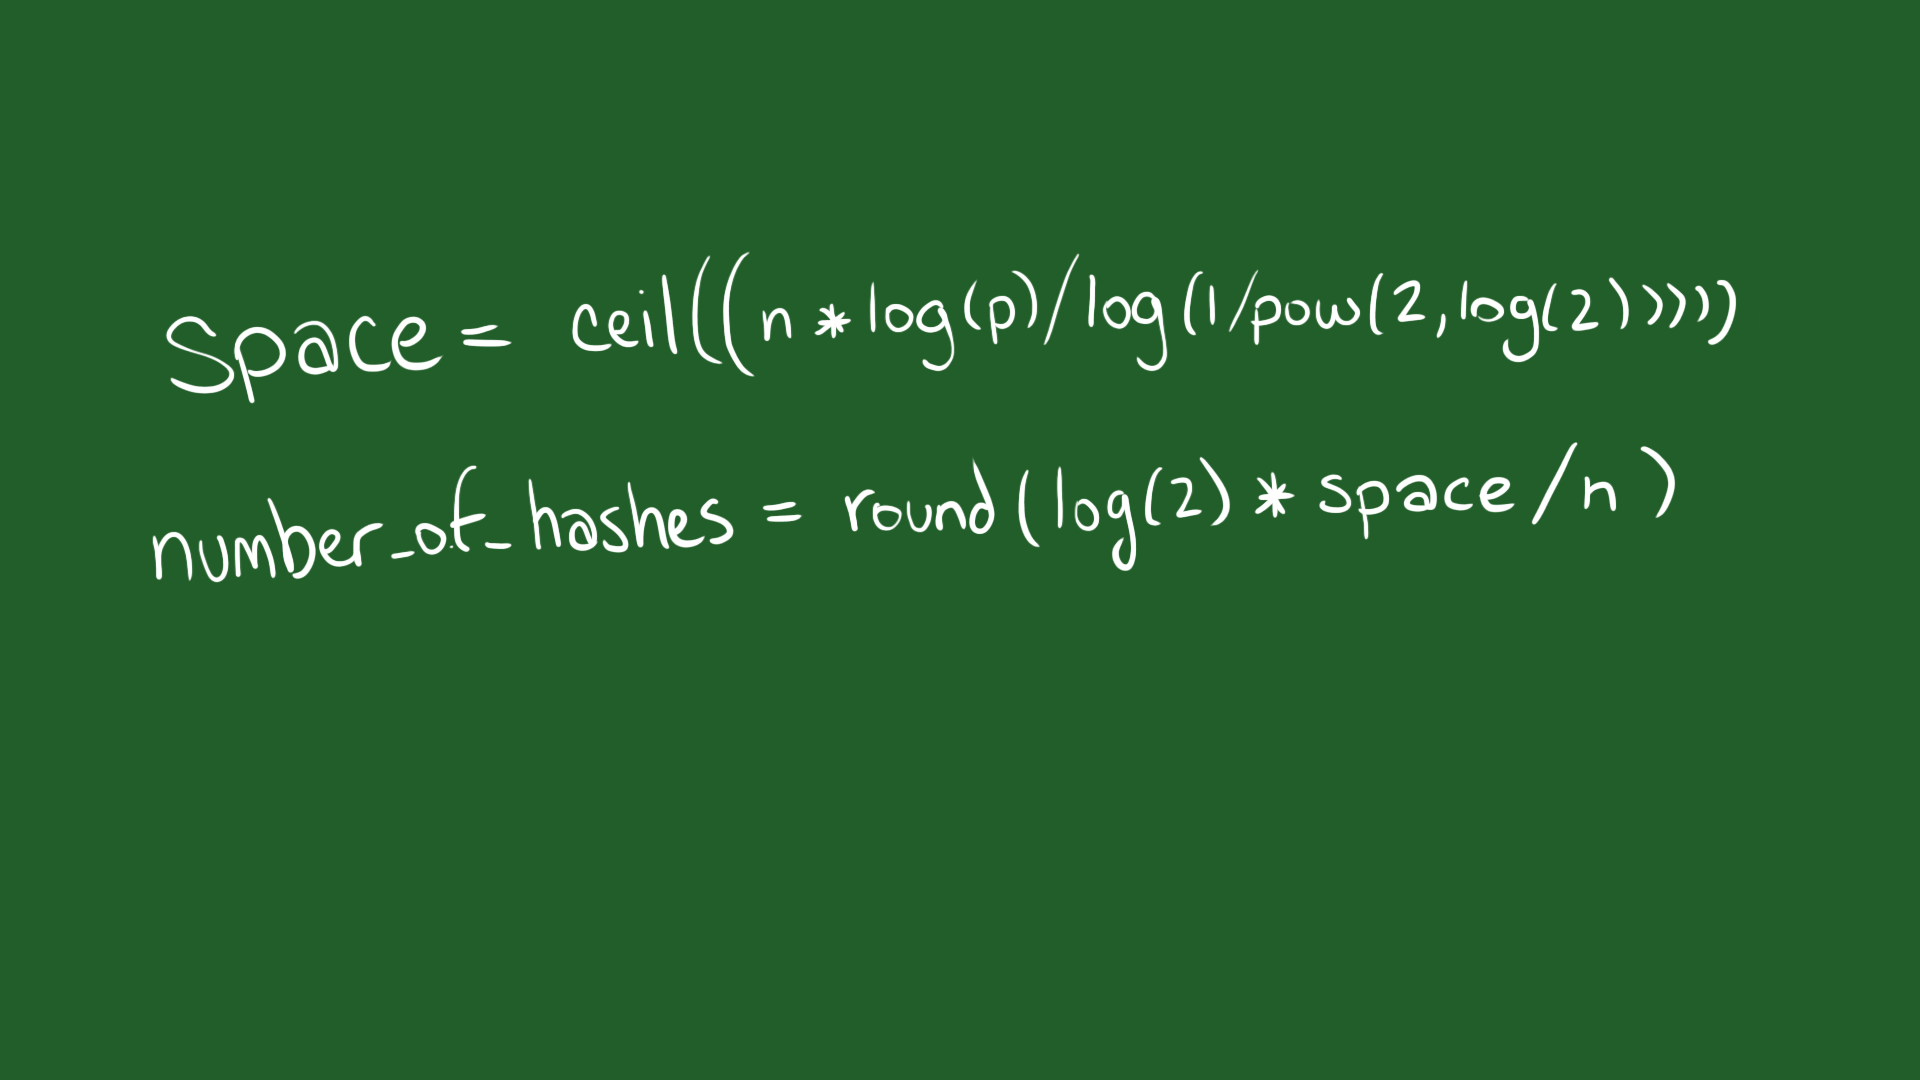 Space = ceil((n * log(p)/log(1/pow(2,log(2)))))
number_of_hashes = round(log(2) * space/n)